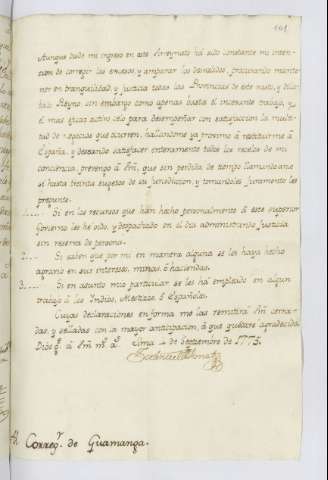 101.
Aunque desde mi ingreso en este Virreynato há sido constante mi inten-
cion de corregir los excesos, y amparar los desvalidos, procurando mante-
ner en tranquilidad y justicia todas las Provincias de este vasto, y dila-
tado Reyno, sin embargo como apenas basta el incesante trabajo, y
el mas eficaz activo celo para desempeñar con satisfaccion la multi-
tud de negocios que ocurren, hallandome ya proximo á restituirme á
España, y deseando satisfacer enteramente todos los recelos de mi
conciencia, prevengo á Vm, que sin perdida de tiempo llamando ante
si hasta treinta sugetos de su Jurisdiccion, y tomandoles Juramento les
pregunte.
1.... Si en los recursos que hán hecho personalmente á este superior
Govierno les he oido, y despachado en el dia administrando Justicia
sin reserva de persona.
2.... Si saben que por mi en manera alguna se les haya hecho
agravio en sus intereses, minas, ó haciendas.
3.... Si en asunto mio particular se les há empleado en algun
trabajo á los Indios, Mestizos, ó Españoles.
Cuyas declaraciones en forma me las remitirá Vm cerra-
das, y selladas con la mayor anticipacion, á que quedaré agradecido.
Dios gº. á Vm mº. aº. Lima 4 de Septiembre de 1775.
Al Correxʳ. de Guamanga.